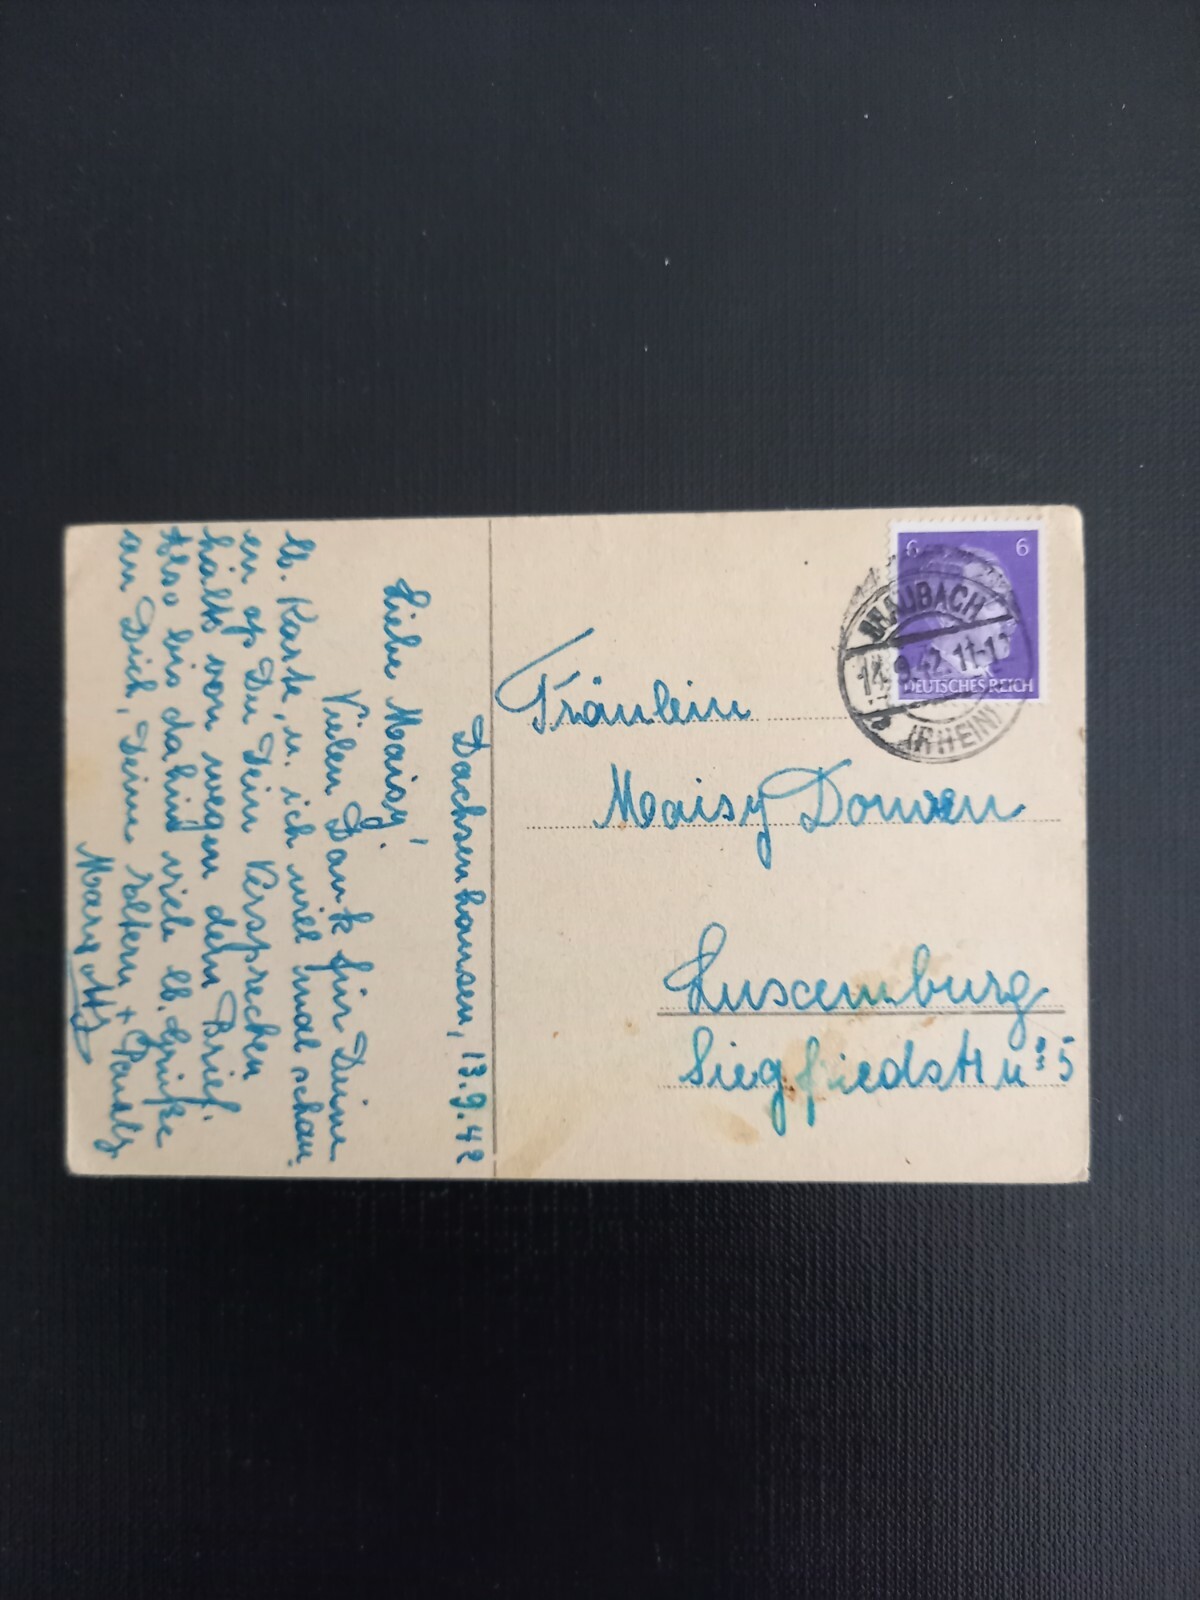 Dachsenhausen, 13.9.42
Liebe Maisy!
Vielen Dank für Deine
lb. Karte, u. ich will mal schau-
en op Du Dein Versprechen
hälts von wegen dem Brief.
Also bis dahin viele lb. Grüße
an Dich, Deine Eltern +
Fräulein
Maisy
Luxemburg
Siegfriedstr
6 6
BRAUBACH
14.9.42.11-1
(RHEIN)
DEUTSCHES REICH